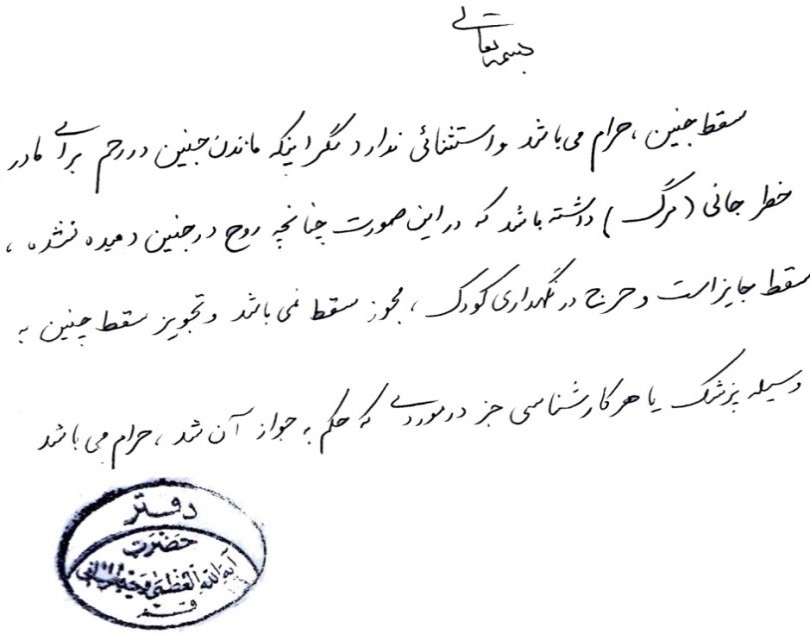 بسمه تعالی
سقط جنین ، حرام می باشد و استثنائی ندارد مگر اینکه ماندن جنین در رحم برای مادر
خطر جانی (مرگ) داشته باشد که در این صورت چنانچه روح در جنین دمیده نشده ،
سقط جایز است و حرج در نگهداری کودک ، مجوز سقط نمی باشد و تجویز سقط جنین به
وسیله پزشک یا هر کارشناسی جز در موردی که حکم به جواز آن شد ، حرام می باشد
دفتر
حضرت
آیة الله العظمی وحید خراسانی
قم